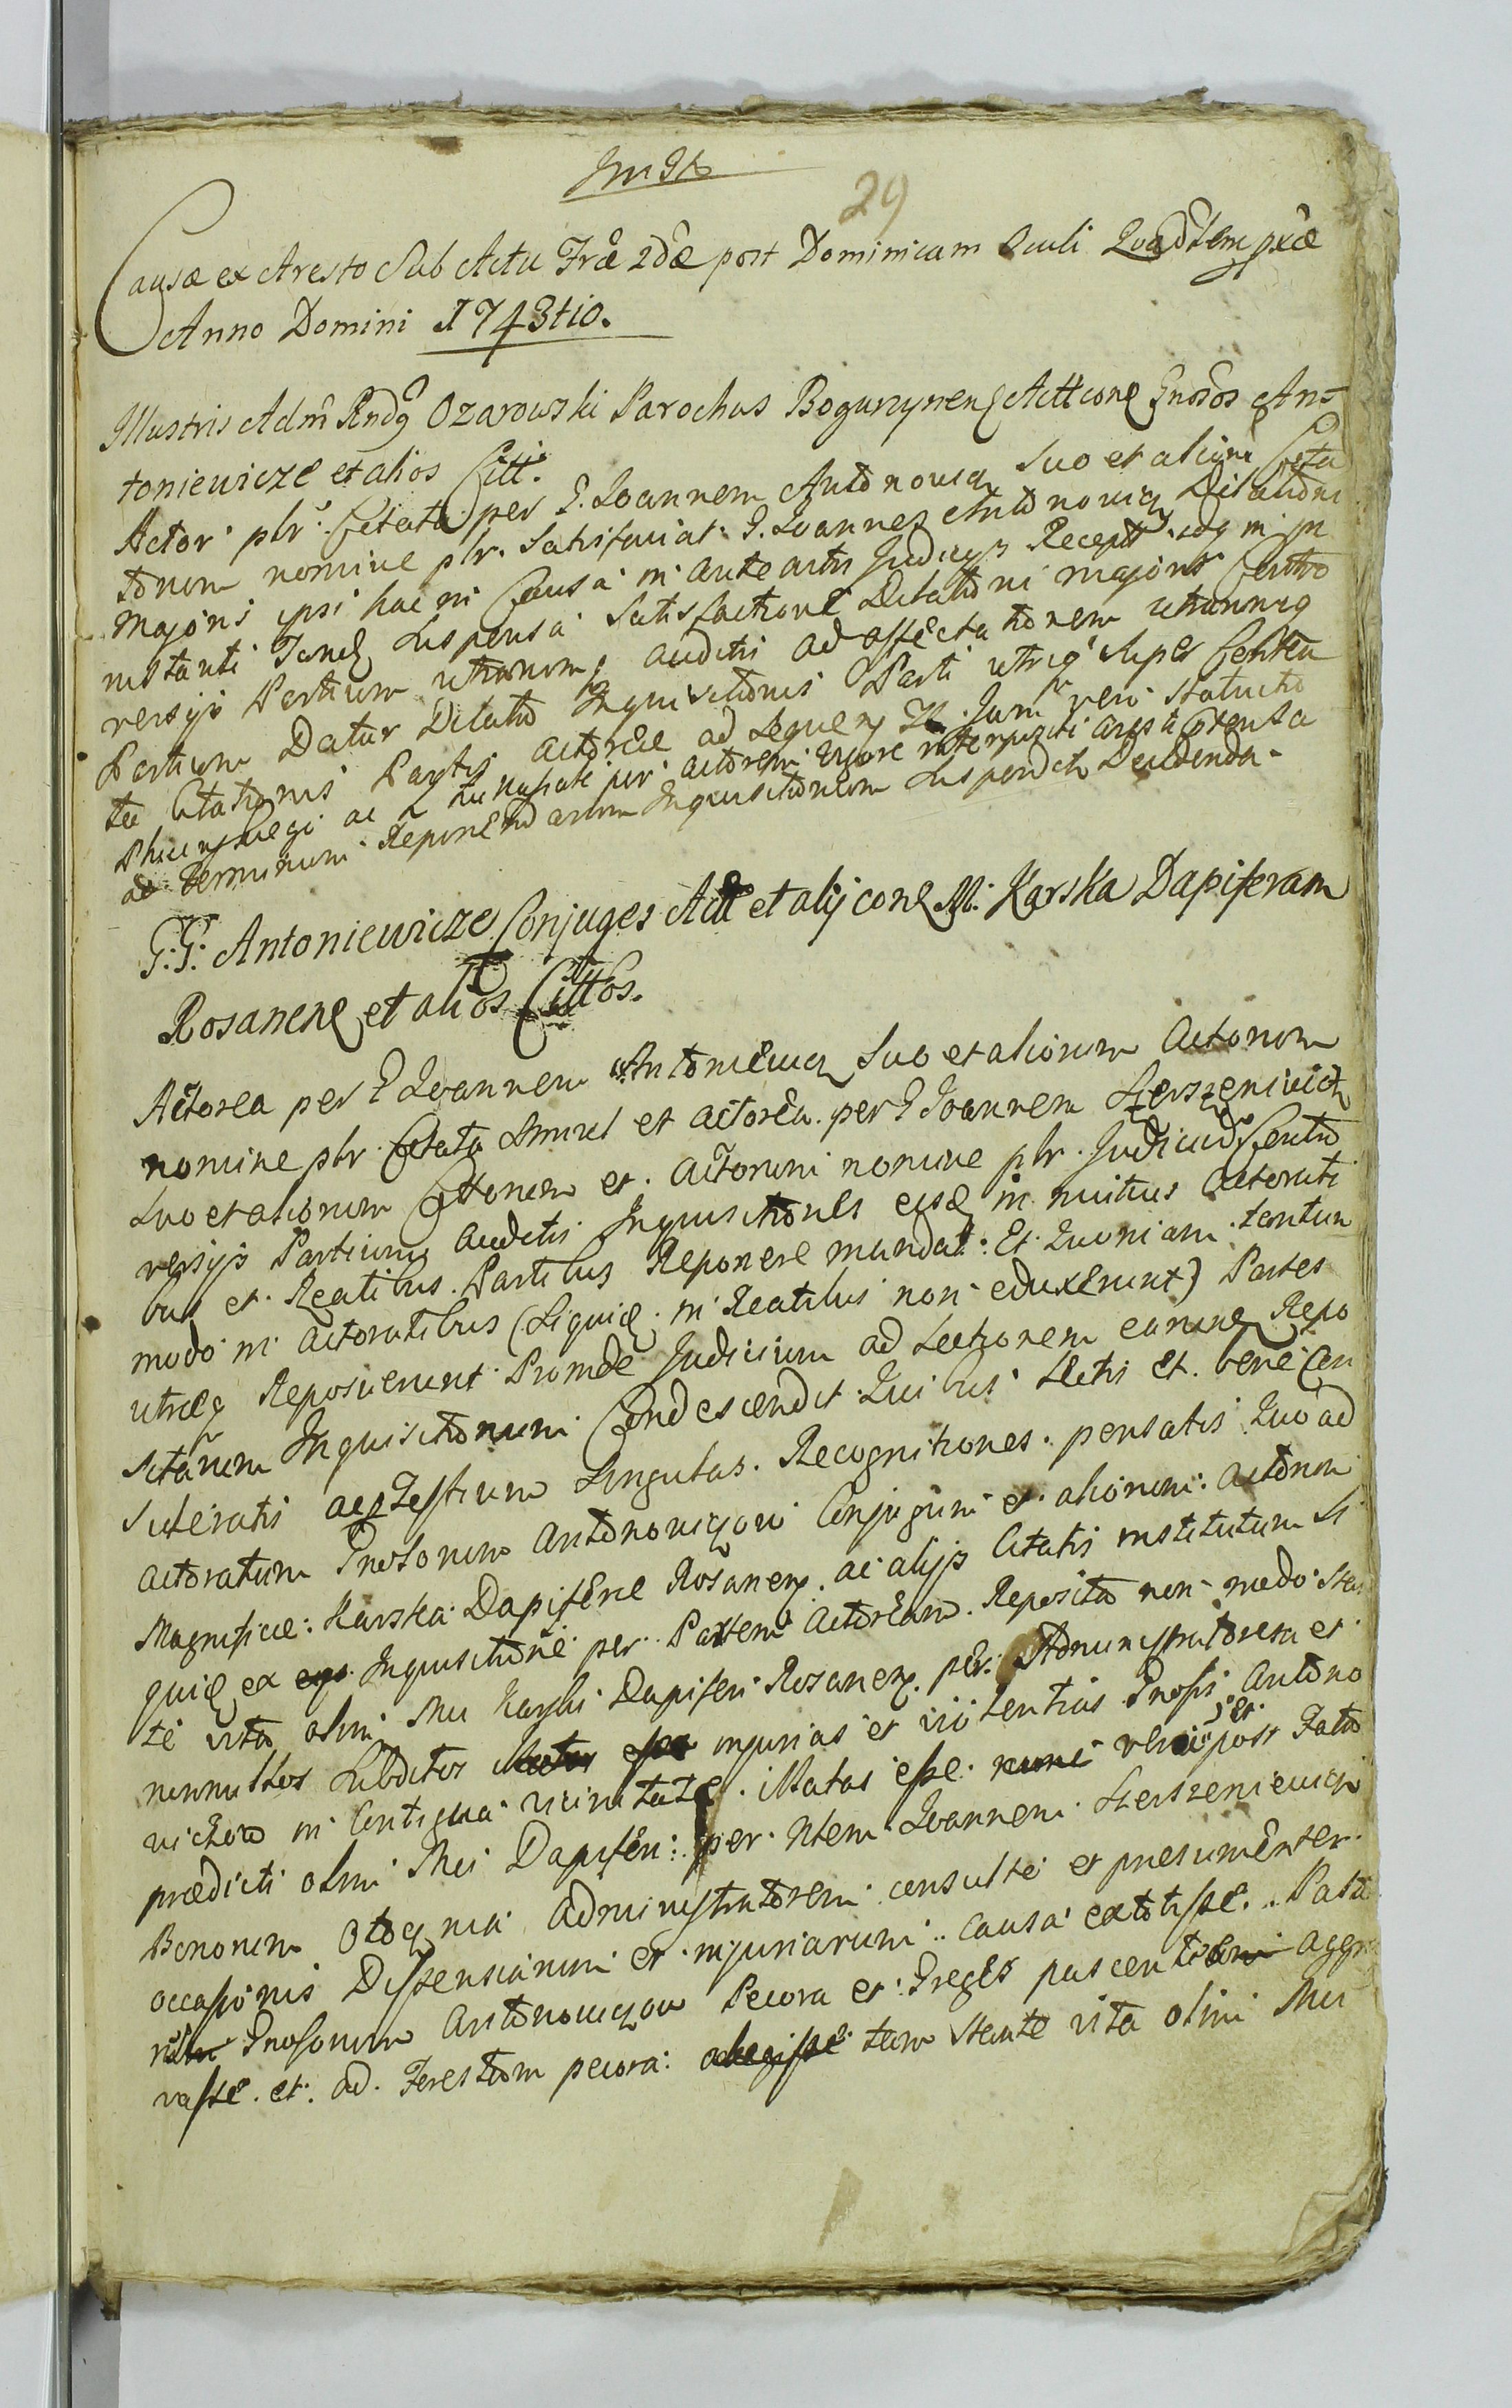 29
Causæ ex Aresto Sub Actu Fræ 2dæ post Dominicam Oculi Quadlem pxæ
Anno Domini 1743tio.
Illustris Adm Rndg Ozarowski Parochus Bogurzynen Actt conε Gnosos An=
toniewicze et alios Citt.
Actor plr. Citata per G. Joannem Antonowicz Suo et alior Cita
torum nomine plr. Satisfaciat. G. Joannes Antonowicz Dilationi
majoris ipsi hac in Causa in ante actis Judicys Recept. idq in in
nstanti Suspensa Satisfactione Dilationi majoris Contro
versys Partium utrarumq auditis ad affectationem utrarumq
Partium Datur Dilatio Inquisitionis Parti utriq super Conten
ta Citationis Partis Actoreæ ad sequen
ac per actorem interpositi
ad Terminum Reponendarum Inquisitionum Suspendit Decidenda.
G:G: Antoniewicze Conjuges Actt et alij conε M: Karska Dapiferam
Rosanenε et alios Cittos.
Actorea per G Joannem Antoniewicz Suo et aliorum Actorum
nomine plr. Citata Simul et actorea per G Joannem Sterszeniwicz
Suo et aliorum Cittorum et Actorum nomine plr. Judicium Contro
versys Partium auditis Inquisitiones easd in mutuis Actorati
bus et Reatibus Partibus Reponere mandat. Et Quoniam tantum
modo in actoratibus (Siquid in Reatibus non eduxerunt) Partes
utræq Reposuerunt Proinde Judicium ad Lectionem earund Repo
sitarum Inquisitionum Condescendit Quibus Lectis et bene Con
sideratis acq Testium Singulas Recognitiones pensatis Quo ad
actoratum Gnosorum Antonowiczow Conjugum et aliorum actorum
Magnificæ Karska Dapiferæ Rosanen. ac alijs Citatis institutum Si
quid ex Inquisitione per Partem Actoream Reposita non modo Stan
te vita olim Mci Karski Dapiferi Rosanen. per Administratorem et
nonnullos Subditos injurias et violentias Gnosis Antono
viczow in Contigua vicinitate illatas esse veru et post Fata
prædicti olim Mci Dapiferi per Ntem Joannem Sterszeniewicz
Bonorum Otocznia administratorem consulte et presumenter
occasionis Dissensionum et injuriarum causa extitisse. Pasto
Gnosorum Antonowiczow Pecora et Greges pascentibus aggra
vasse et ad Forestam pecora abegisse tum Stante vita olim Mci